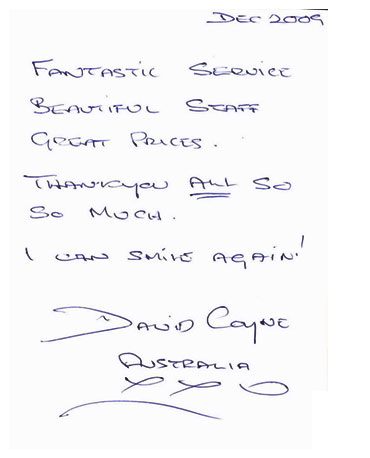 DEC 2009
FANTASTIC SERVICE
BEAUTIFUL STAFF
GREAT PRICES.
THANKYOU ALL SO
SO MUCH.
I CAN SMILE AGAIN!
DAVID COYNE
AUSTRALIA
XXO